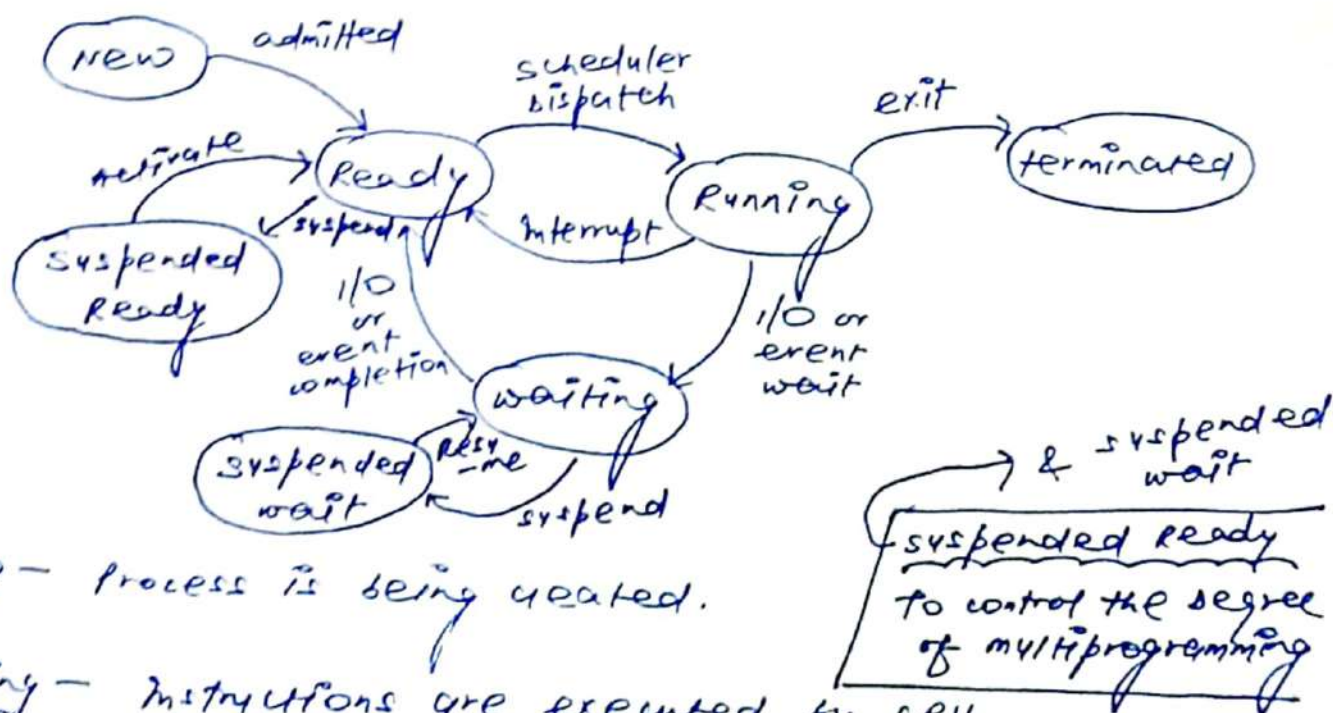 New
admitted
scheduler
Dispatch
exit
Ready
Running
terminated
Activate
suspend
Interrupt
suspended
Ready
I/O
or
event
completion
I/O or
event
wait
waiting
suspended
wait
Resu
-me
suspend
& suspended
wait
suspended Ready
To control the degree
of multiprogramming
– Process is being created.
ng – Instructions are executed